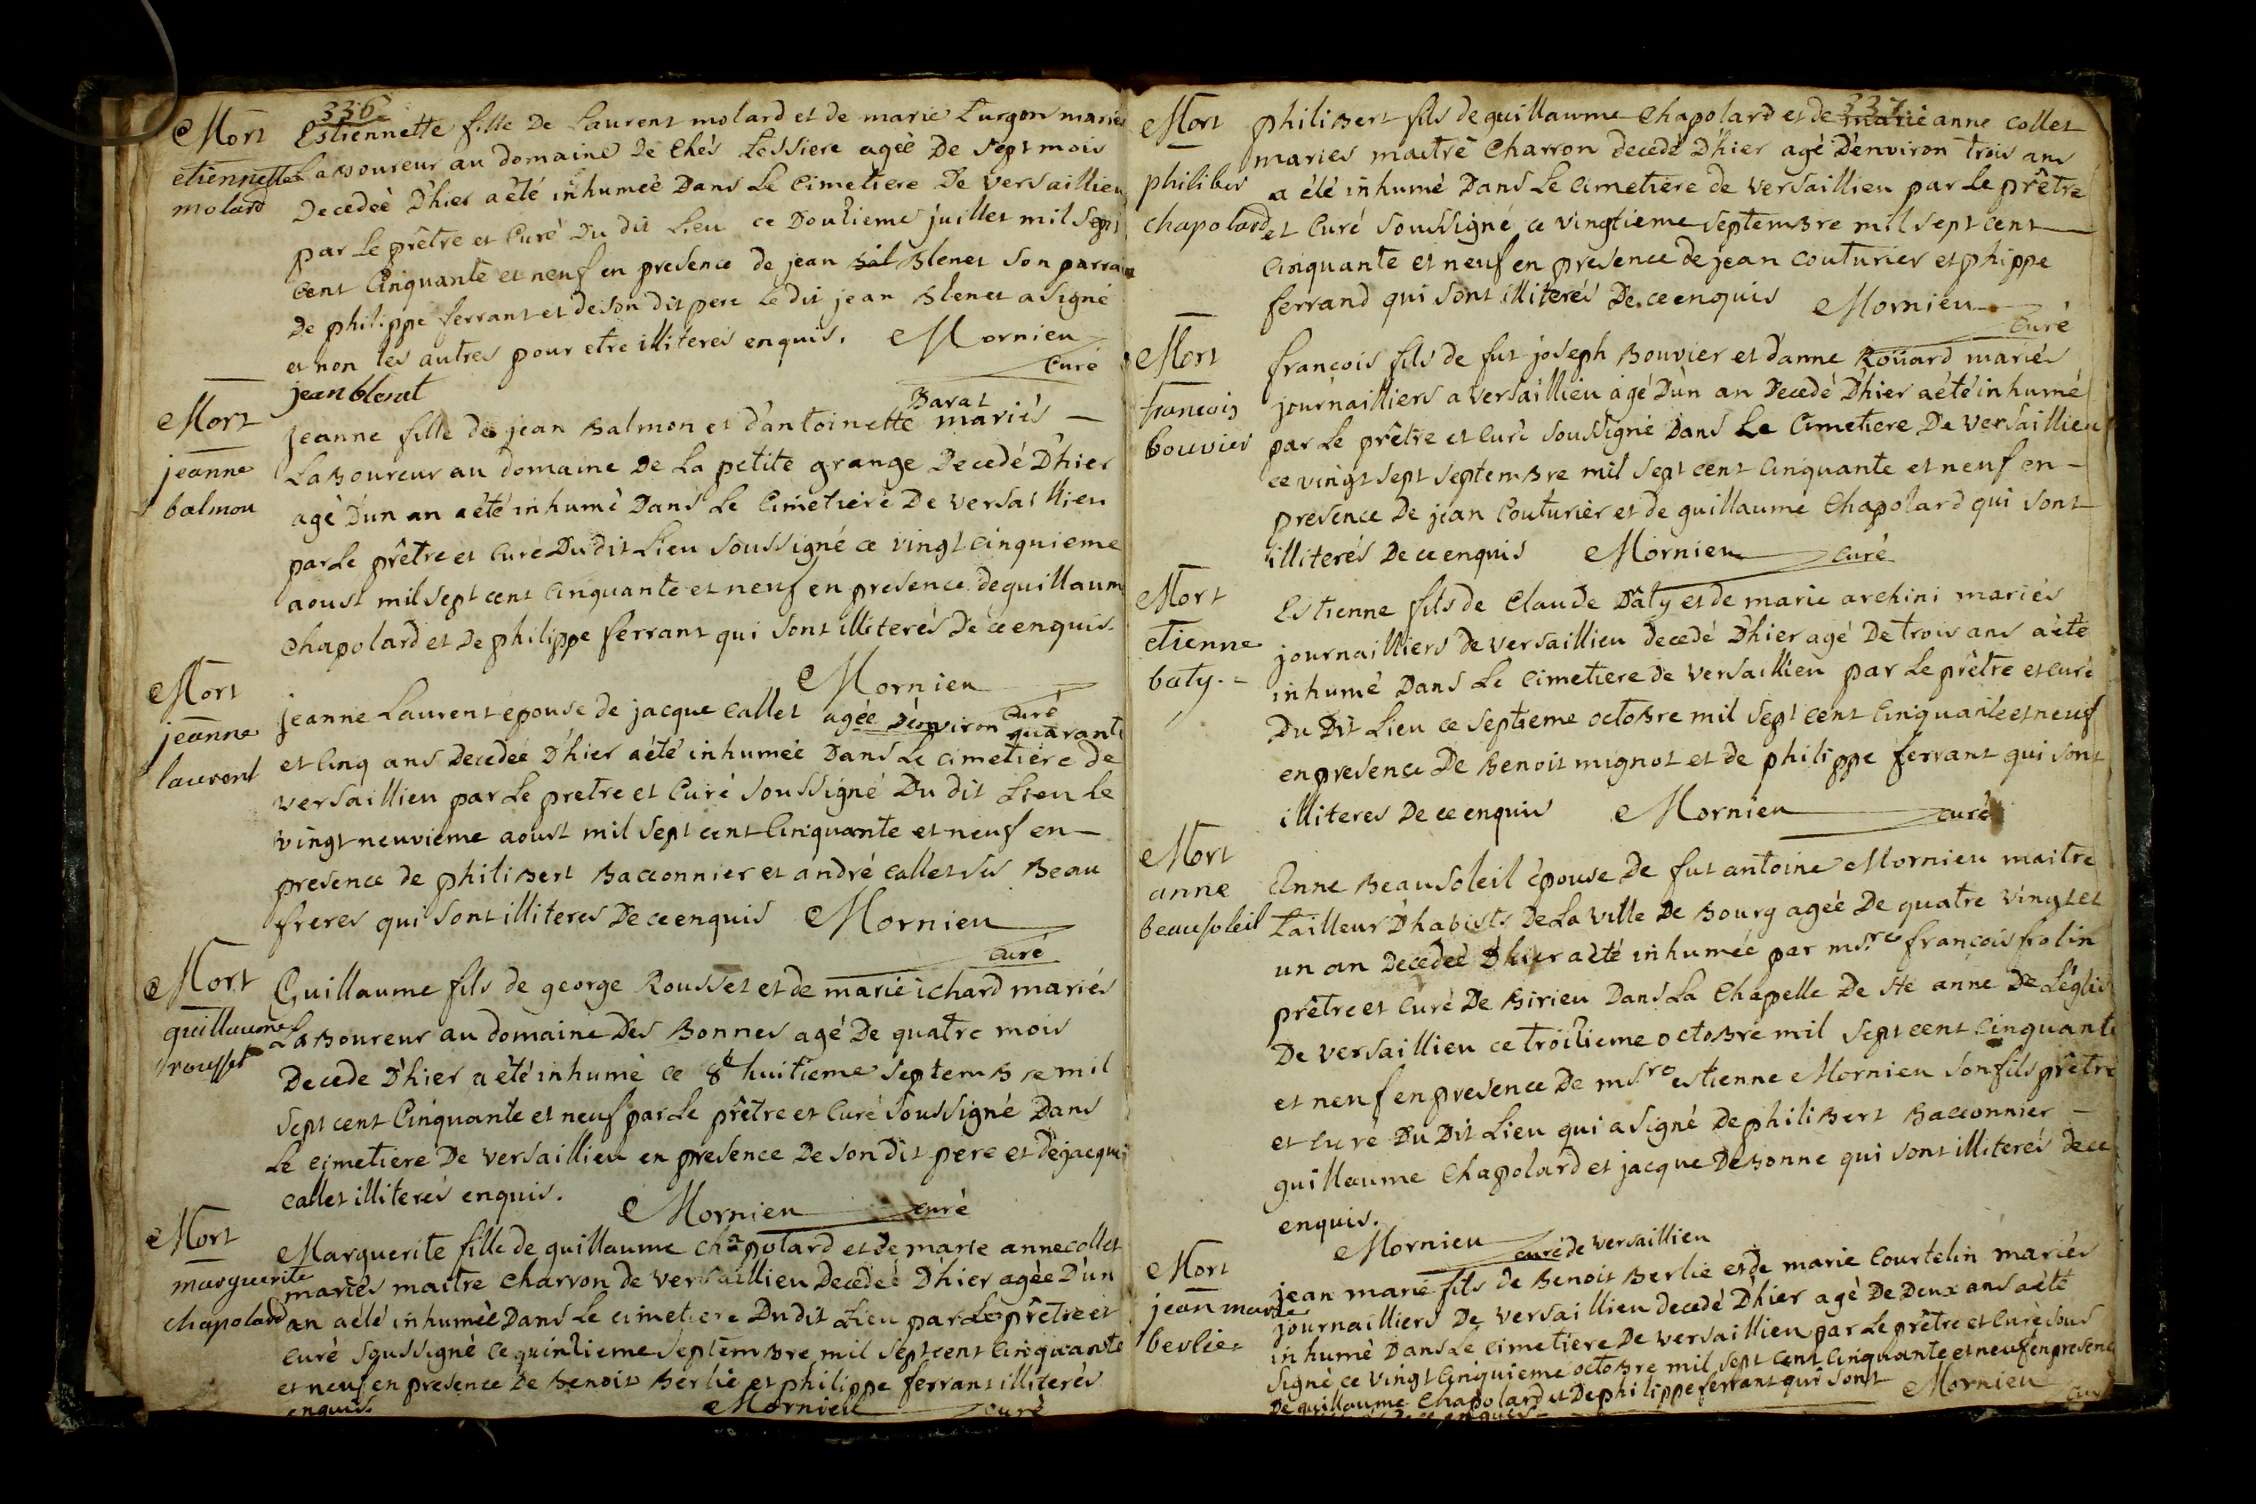 336
Mort
etiennette
molard
Estiennette fille De Laurent molard et de marie Turgon mariés
Laboureur au domaine De Chés Lessiere ageé De sept mois
Decedeé D'hier a été inhumeé Dans Le Cimetiere De versaillieu
par Le prêtre et Curé Du dit Lieu ce Douzieme juillet mil sept
cent Cinquante et neuf en presence de jean Bal Blenet son parrain
De philippe ferrant et de son dit pere Le dit jean Blenet a signé
et non les autres pour etre illiteres enquis. Mornieu
Curé
jean blenet
Mort
jeanne
balmon
Barat
jeanne fille de jean Balmon et d'antoinette mariés
Laboureur au domaine De La petite grange Decedé D'hier
agé D'un an a été inhumé Dans Le Cimetiere De versaillieu
par Le prêtre et Curé Du dit Lieu soussigné ce vingt cinquieme
aoust mil sept cent Cinquante et neuf en presence de guillaume
Chapolard et De philippe ferrant qui sont illiterés De ce enquis.
Mornieu
Curé
Mort
jeanne
laurent
jeanne Laurent epouse de jacque callet ageé D'environ quarante
et Cinq ans Decedeé D'hier a été inhumeé Dans Le cimetiere de
versaillieu par Le pretre et Curé soussigné Du dit Lieu Le
vingt neuvieme aoust mil sept cent Cinquante et neuf en
presence de philibert Bacconnier et andré callet ses Beau
freres qui sont illiteres De ce enquis Mornieu
Curé
Mort
guillaume
rousset
Guillaume fils de george Rousset et de marie ichard mariés
Laboureur au domaine Des Bonnes agé De quatre mois
Decede D'hier a été inhumé ce 8e huitieme septembre mil
sept cent Cinquante et neuf par Le prêtre et Curé soussigné Dans
Le cimetiere De versaillieu en presence De son dit pere et de jacque
callet illiterés enquis. Mornieu curé
Mort
marguerite
chapolard
Marguerite fille de guillaume chapolard et de marie anne collet
mariés maitre charron de versaillieu Decedeé D'hier ageé D'un
an a été inhumeé Dans Le cimetiere Du dit Lieu par Le prêtre et
curé soussigné ce quinzieme septembre mil sept cent cinquante
et neuf en presence De Benoit Berlié et philippe ferrant illiterés
enquis. Mornieu curé
337
Mort
philiber
chapolard
philibert fils de guillaume Chapolard et de marie anne collet
mariés maitre Charron decedé D'hier agé D'environ trois ans
a été inhumé Dans Le cimetiere de versaillieu par Le prêtre
et Curé soussigné ce vingtieme septembre mil sept cent
Cinquante et neuf en presence de jean couturier et phippe
ferrand qui sont illiterés De ce enquis Mornieu
Curé
Mort
francois
bouvier
françois fils de fut joseph Bouvier et d'anne Roüard mariés
journailliers a versaillieu agé D'un an Decedé D'hier a été inhumé
par Le prêtre et Curé soussigné Dans Le Cimetiere De versaillieu
ce vingt sept septembre mil sept cent Cinquante et neuf en
presence De jean Couturier et de guillaume Chapolard qui sont
illiterés De ce enquis Mornieu curé
Mort
etienne
baty.
Estienne fils de Claude Bâty et de marie archini mariés
journailliers de versaillieu decedé D'hier agé De trois ans a été
inhumé Dans Le Cimetiere de versaillieu par Le prêtre et curé
Du Dit Lieu ce septieme octobre mil sept cent Cinquante et neuf
en presence De Benoit mignot et de philippe ferrant qui sont
illiteres De ce enquis Mornieu curé
Mort
anne
beausoleil
Anne Beausoleil épouse De fut antoine Mornieu maitre
Tailleur D'habists De La ville De Bourg ageé De quatre vingt et
un an Decedeé D'hier a été inhumée par msre françois frolin
prêtre et Curé De Birieu Dans La Chapelle De Ste anne De L'église
De versaillieu ce troizieme octobre mil sept cent Cinquante
et neuf en presence De msre estienne Mornieu son fils prêtre
et Curé Du Dit Lieu qui a signé De philibert Bacconnier
guillaume Chapolard et jacque Debonne qui sont illiterés de ce
enquis.
Mornieu curé de versaillieu
Mort
jean marie
berlie
jean marie fils de Benoit Berlie et de marie Courtelin mariés
journailliers De versaillieu decedé D'hier agé De Deux ans a été
inhumé Dans Le Cimetiere De versaillieu par Le prêtre et Curé sous
signé ce vingt Cinquieme octobre mil sept cent Cinquante et neuf en presence
De guillaume Chapolard et De philippe ferrant qui sont Mornieu curé
enquis